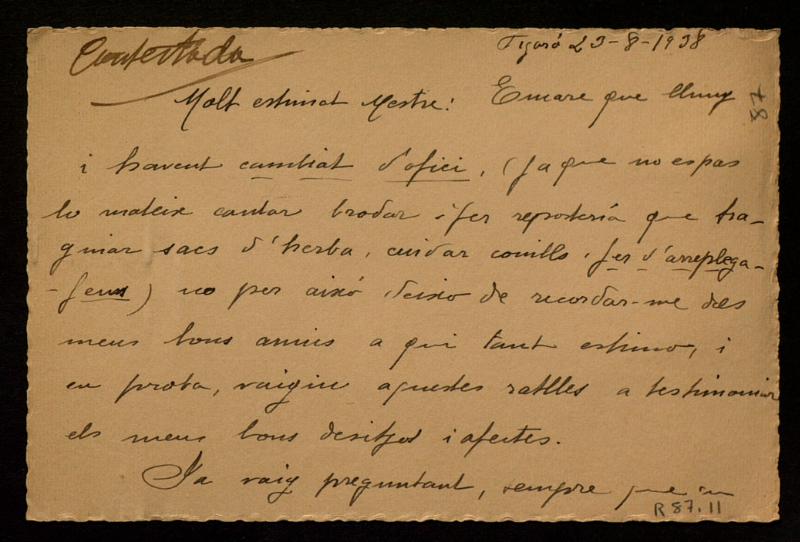 Contestada
Figaró 23-8-1938
Molt estimat Mestre: Encare que lluny
78
i havent cambiat d'ofici, (ja que no es pas
lo mateix cantar brodar i fer reposteria que tra-
ginar sacs d'herba, cuidar conills i fer d'arreplega-
-fems) no per aixó deixo de recordar-me dels
meus bons amics a qui tant estimo, i
en proba, vaigin aquestes ratlles a testimoniar
els meus bons desitjos i afectes.
Ja vaig preguntant, sempre que
R 87.11